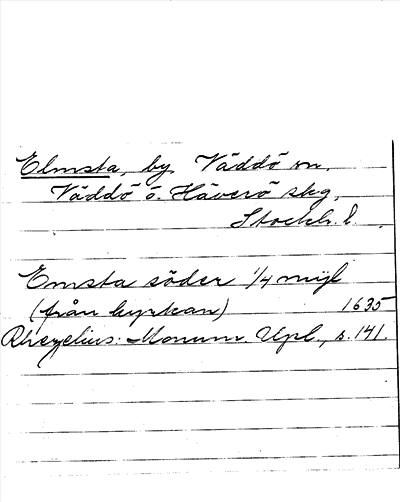 Elmsta, by, Väddö sn.
Väddö o. Häverö skg,
Stockh. l.
Emsta söder 1/4 mijl
(från kyrkan) 1635
Rhezelius: Monum. Upl., s. 141.